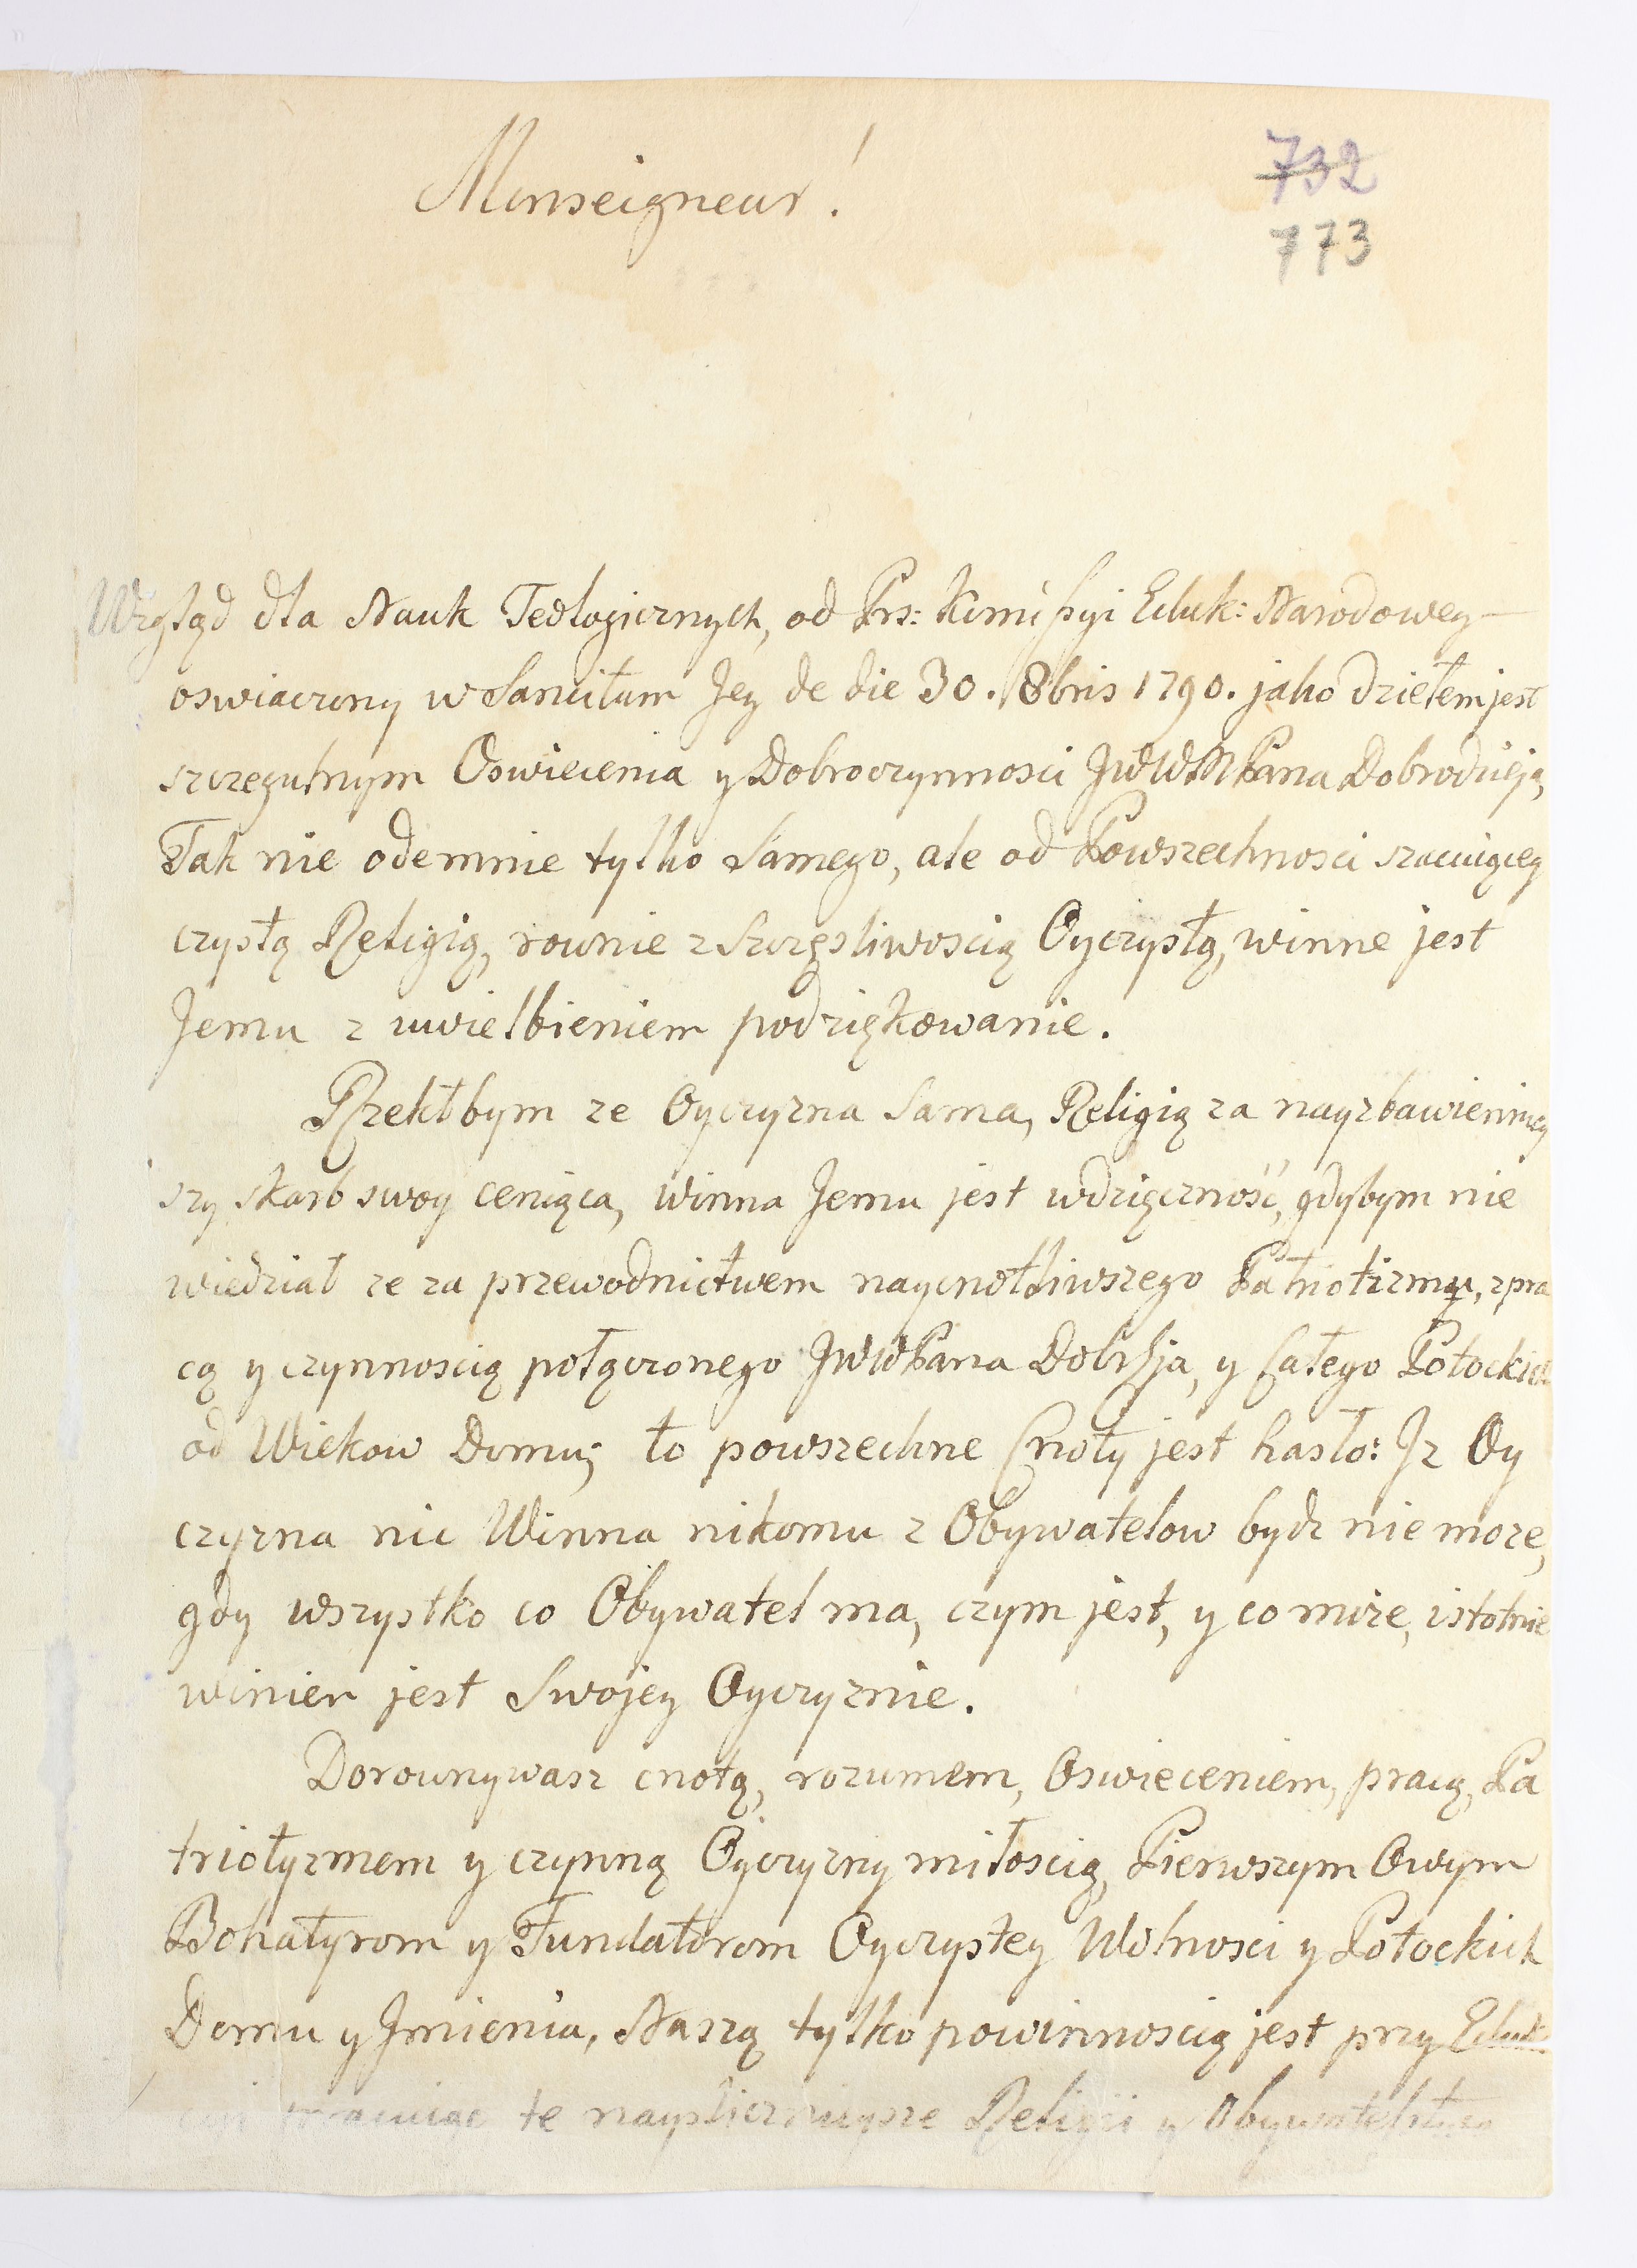 Monseigneur!
732
773
Wzgląd dla Nauk Teologicznych, od Prs: Kommissyi Eduk: Narodowey
oswiaczony w Sancitum Jey de die 30. 8bris 1790. jako dziełem jest
szczegulnym Oswiecenia y Dobroczynnosci JWWMPana Dobrodzieja,
Tak nie odemnie tylko Samego, ale od Powszechnosci szacuiącey
czystą Religią, rownie z Szczęsliwoscią Oyczystą, winne jest
Jemu z uwielbieniem podziękowanie.
Rzekłbym ze Oyczyzna Sama, Religią za nayzbawienniey
szy skarb swoy ceniąca, winna Jemu jest wdzięczność, gdybym nie
wiedział ze za przewodnictwem naycnotliwszego Patriotizmu, z pra
cą y czynnoscią połączonego JWWPana Dobrja, y Całego Potockich
od Wiekow Domu; to powszechne Cnoty jest hasło: Jz Oy
czyzna nic Winna nikomu z Obywatelow bydz nie moze,
gdy wszystko co Obywatel ma, czym jest, y co może, istotnie
winien jest Swojey Oyczyznie.
Dorownywasz cnotą, rozumem, Oswieceniem, pracą, Pa
triotyzmem y czynną Oyczyzny miłoscią, Pierwszym Owym
Bohatyrom y Fundatorom Oyczystey Wolnosci y Potockich
Domu y Jmienia, Naszą tylko powinnoscią jest przy Eduk
te nayslicznieysze Religii y Obywatelstwa